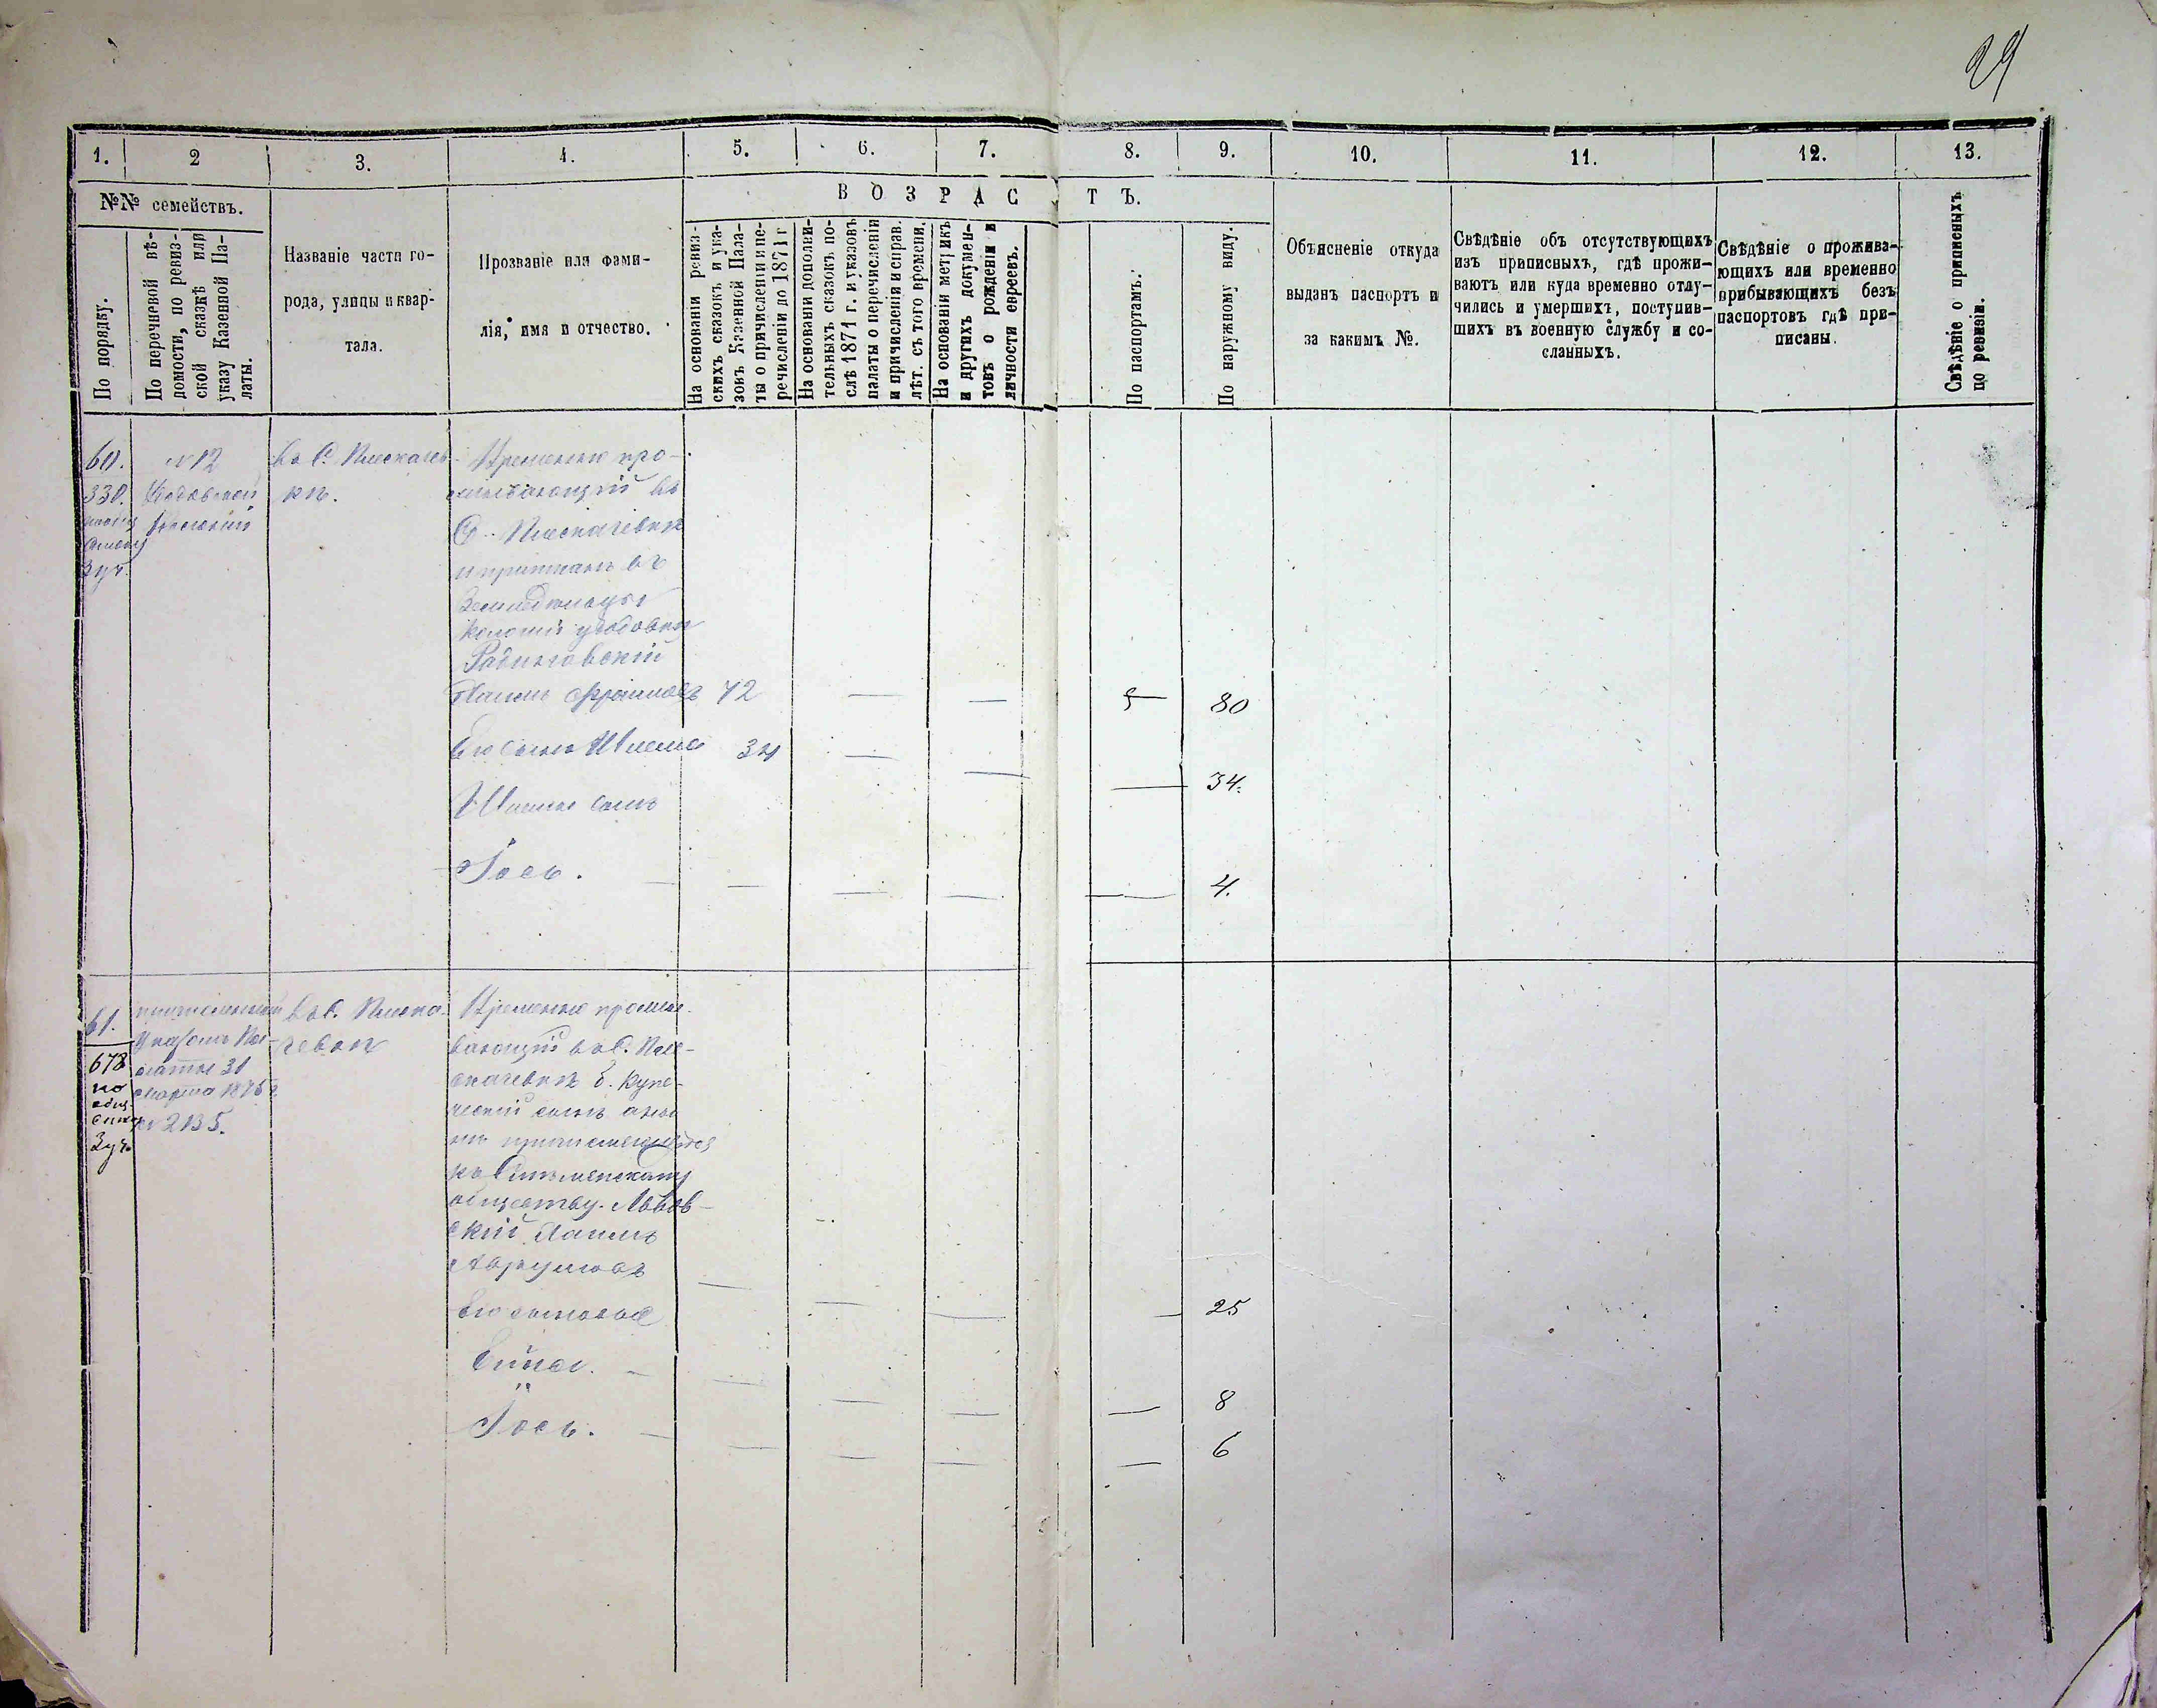 29
1. 2 3. 4. 5. 6. 7. 8. 9. 10. 11. 12. 13.
№№ семействъ.
В О З Р А С Т Ъ.
По порядку.
По перечневой вѣ-
домости, по ревиз-
ской сказкѣ или
указу Казенной Па-
латы.
Названіе части го-
рода, улицы и квар-
тала.
Прозваніе или фами-
лія, имя и отчество.
На основаніи ревиз-
скихъ сказокъ и ука-
зовъ Казенной Пала-
ты о причисленіи и пе-
речисленіи до 1871 г
На основаніи дополни-
тельныхъ сказокъ по-
слѣ 1871 г. и указовъ
палаты о перечисленіи
и причисленіи и справ.
лѣт. съ того времени.
На основаніи метрикъ
и другихъ докумен-
товъ о рожденіи и
личности евреевъ.
По паспортамъ.
По наружному виду.
Объясненіе откуда
выданъ паспортъ и
за какимъ №.
Свѣдѣніе объ отсутствующихъ
изъ приписныхъ, гдѣ прожи-
ваютъ или куда временно отлу-
чились и умершихъ, поступив-
шихъ въ военную службу и со-
сланныхъ.
Свѣдѣніе о прожива-
ющихъ или временно
прибывающихъ безъ
паспортовъ гдѣ при-
писаны.
Свѣдѣніе о приписныхъ
по ревизіи.
60.
330.
3 уч.
№ 12
въ С. Плескачев-
кѣ.
Временно про-
живающій въ
С. Плескачевкѣ
и приписанъ въ
колоніи
72 — — 80
Его сынъ Шлема 34 — — — 34.
Шлемы сынъ
Іось. — — — — 4.
61.
678
по
общ.
списку
3 уч.
Указомъ Па-
латы 31
марта 1876 г.
№ 2135.
въ С. Плеска-
чевкѣ
Временно прожи-
вающій въ С. Пле-
скачевкѣ б. купе-
ческій сынъ а ны-
нѣ
обществу. Львов-
скій
— — — — 25
Его сыновья
— — — — 8
Іось. — — — — 6